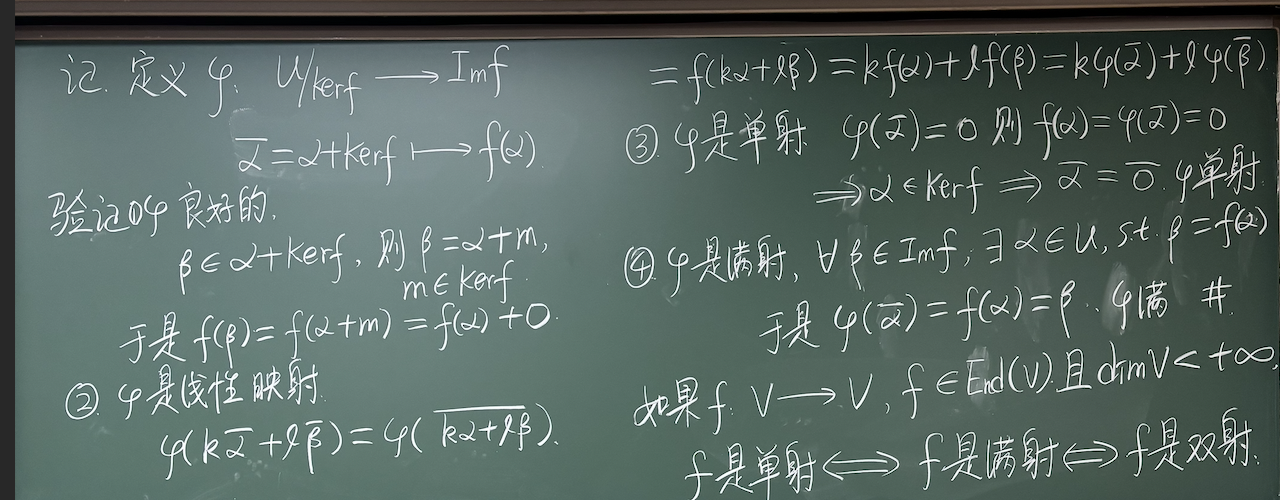 记. 定义 φ: U/kerf ⟶ Imf
ᾱ = α+kerf ⟼ f(α).
验记①φ 良好的.
β ∈ α+kerf, 则 β = α+m,
m ∈ kerf.
于是 f(β) = f(α+m) = f(α) + 0.
② φ 是线性映射.
φ(kᾱ + lβ̄) = φ( \overline{kα+lβ} ).
= f(kα+lβ̄) = kf(α) + lf(β) = kφ(ᾱ) + lφ(β̄)
③ φ是单射 φ(ᾱ) = 0 则 f(α) = φ(ᾱ) = 0
⟹ α ∈ kerf ⟹ ᾱ = 0̄. φ单射.
④ φ是满射, ∀ β ∈ Imf, ∃ α ∈ U, s.t. β = f(α)
于是 φ(ᾱ) = f(α) = β. φ满 #.
如果 f: V ⟶ V, f ∈ End(V) 且 dimV < +∞,
f是单射 ⟺ f是满射 ⟺ f是双射.